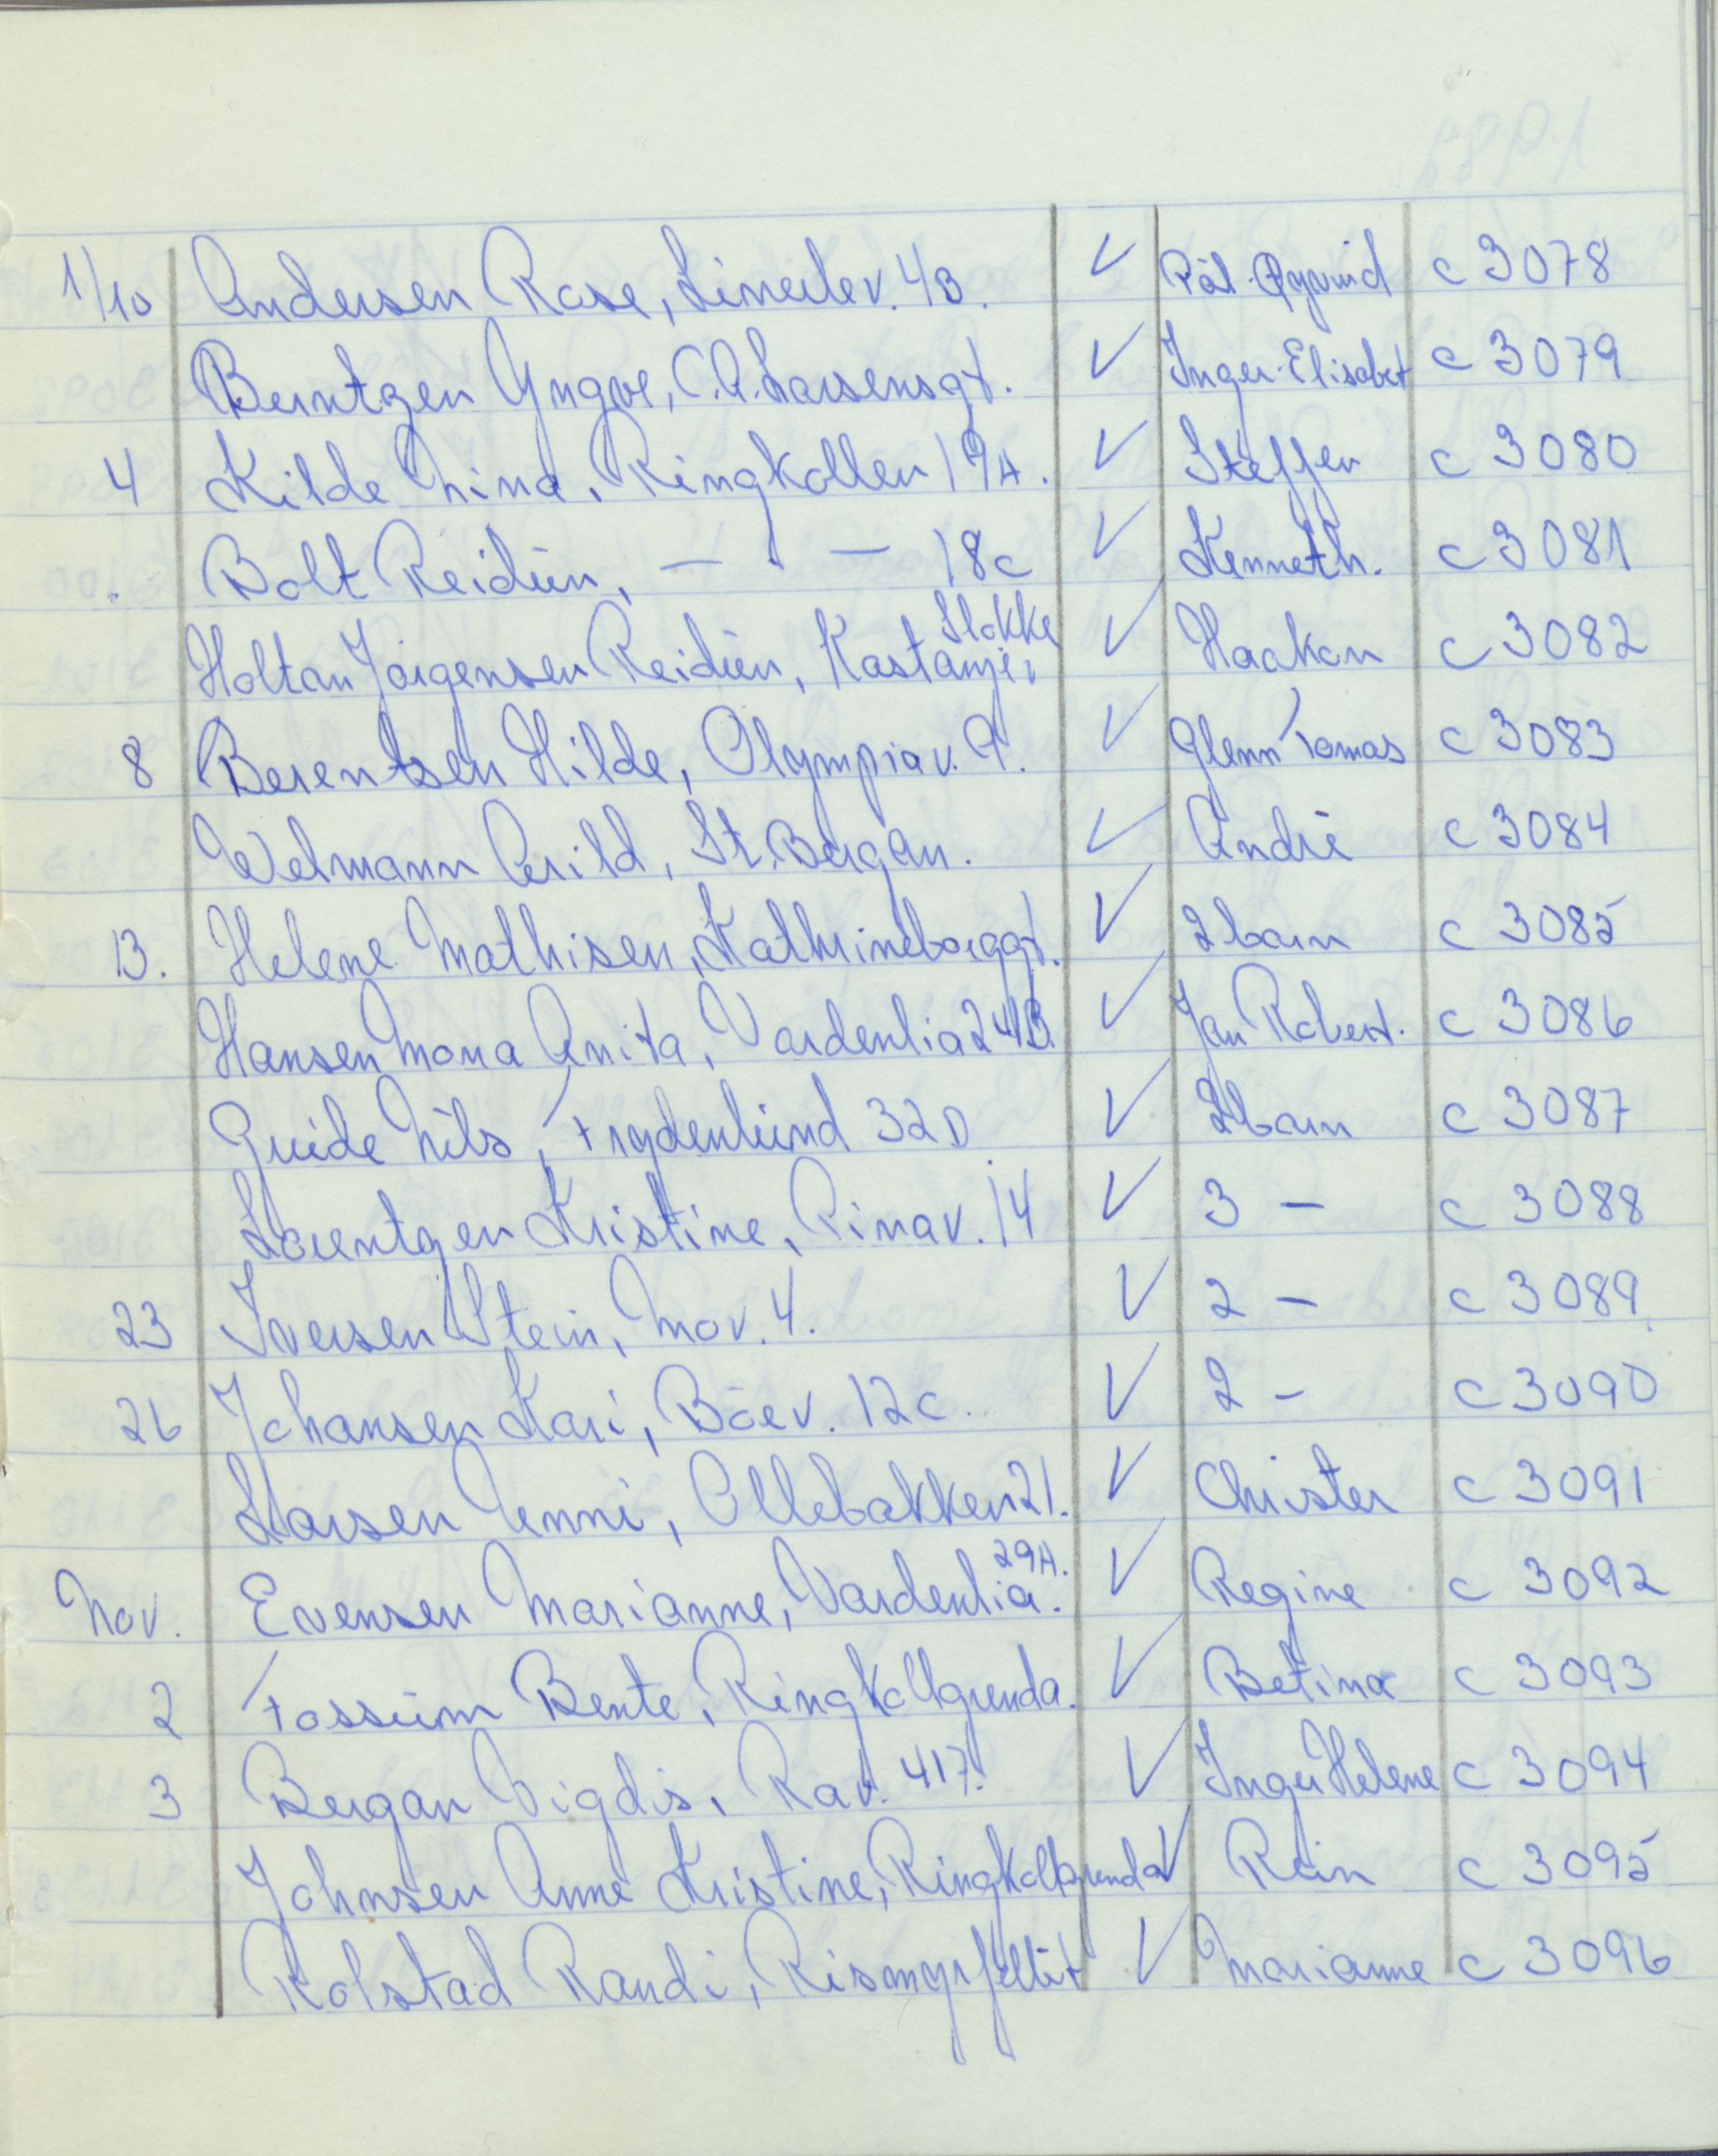 1/10 Andersen Rose, Linerlev. 4B. ✓ Pål-Øyvind c 3078
Berntzen Yngve, C.A. Larsensgt. ✓ Inger-Elisabet c 3079
4 Kilde Nina, Ringkollen 19A. ✓ Steffen c 3080
Bolt Reidun, — " — 18c ✓ Kenneth. c 3081
Stokke
Holtan Jørgensen Reidun, Kastanjev. ✓ Haakon c 3082
8 Berentsen Hilde, Olympiav. 9. ✓ Glenn Tomas c 3083
Welmann Arild, St. Bergan. ✓ André c 3084
13. Helene Mathisen, Kathrineborggt. ✓ 2 barn c 3085
Hansen Mona Anita, Vardenlia 24B. ✓ Jan Robert. c 3086
Guide Nils, Frydenlund 32D ✓ 2 barn c 3087
Lorentzen Kristine, Rinav. 14 ✓ 3 — c 3088
23 Iversen Stein, Mov. 4. ✓ 2 — c 3089
26 Johansen Kari, Bøev. 12c. ✓ 2 — c 3090
Larsen Unni, Ollebakken 21. ✓ Christer c 3091
29A.
Nov. Evensen Marianne, Vardenlia. ✓ Regine c 3092
2 Fossum Bente, Ringkollgrenda. ✓ Betina c 3093
3 Bergan Vigdis, Rav. 417. ✓ Inger Helene c 3094
Johnsen Anne Kristine, Ringkollgrenda ✓ Rein c 3095
Rolstad Randi, Rismyrfeltet ✓ Marianne c 3096